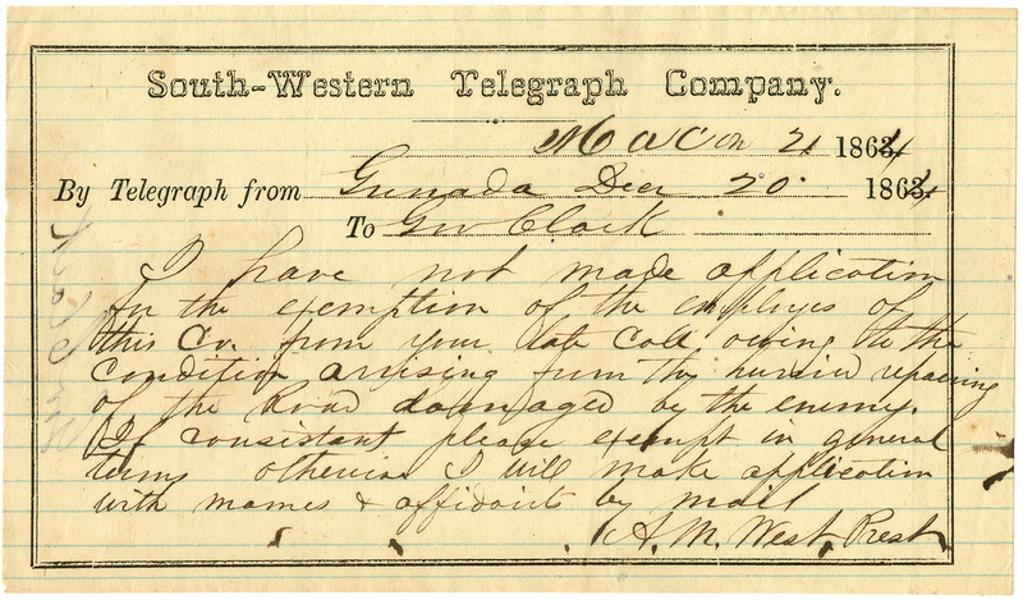 South-Western Telegraph Company.
Macon 21 1864
By Telegraph from Grenada Decr 20 1864
To Gov Clark
I have not made application
for the exemption of the employes of
this Co. from your late call owing to the
condition arrising from the hurried repairing
of the Road damaged by the enemy.
If consistant please exempt in general
terms otherwise I will make application
with names & affidavits by mail
A. M. West Prest